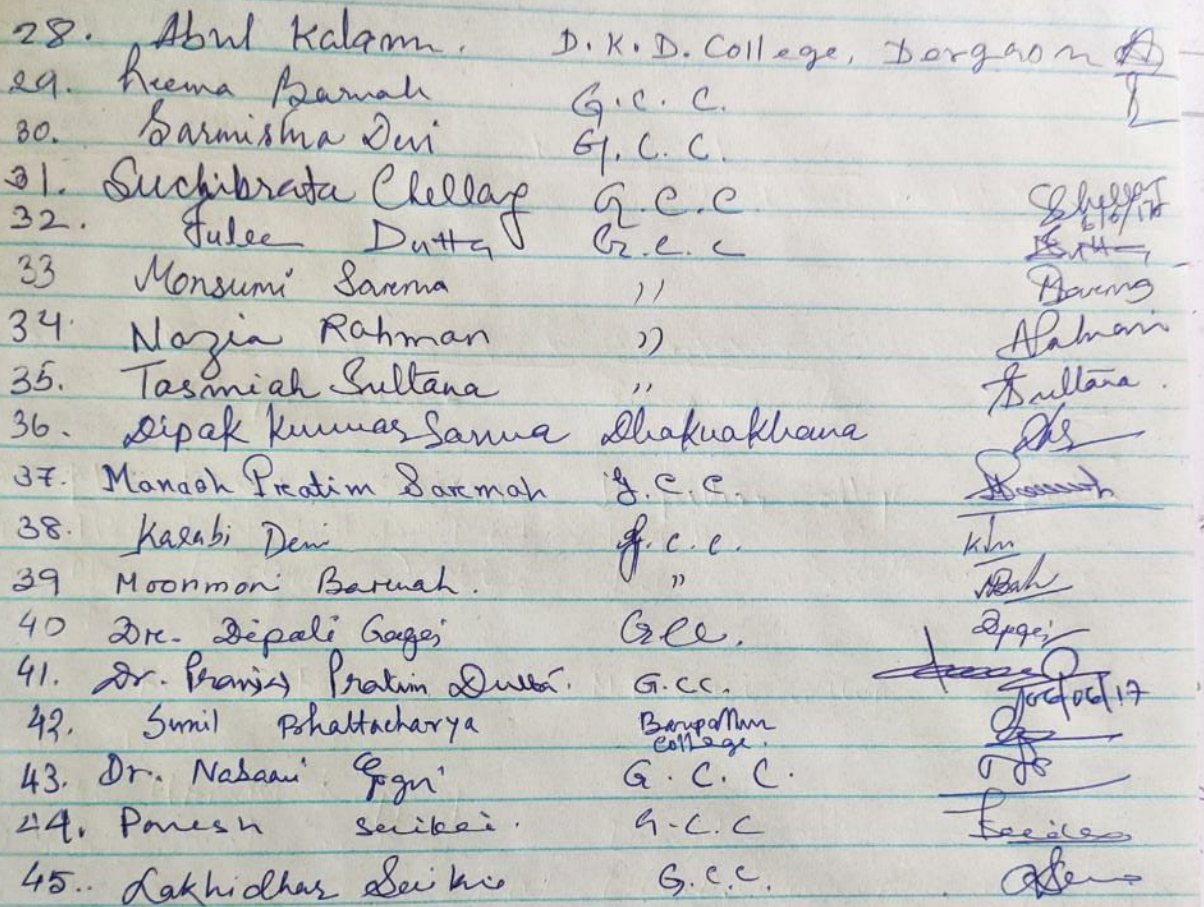 28. Abul Kalam. D.K.D. College, Dergaon
29. Reema Baruah G.C.C.
30. Sarmistha Devi G.C.C.
31. Suchibrata Chellag G.C.C
32. Julee Dutta G.C.C
33 Monsumi Sarma ,,
34. Nazia Rahman ,, Rahman
35. Tasmiah Sultana ,, Sultana.
36. Dipak Kumar Sarma Dhakuakhana
37. Manash Pratim Sarmah G.C.C.
38. Karabi Devi G.C.C.
39 Moonmoni Baruah. ,,
40 Dr. Dipali Gogoi GCC.
41. Dr. Pranjal Pratim Dutta. G.CC. 06/06/17
42. Sunil Bhattacharya Barpathar College.
43. Dr. Nabaani Gogoi G.C.C.
44. Ponesh Saikia. G.C.C
45.. Lakhidhar Saikia G.C.C.